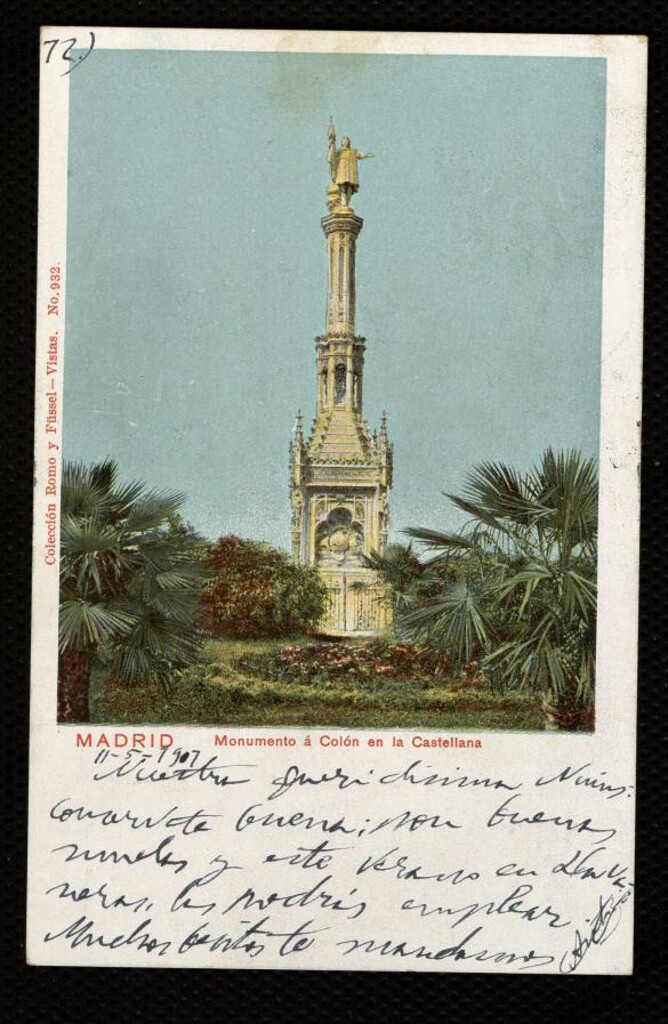 72)
Colección Romo y Füssel — Vistas. No. 932.
MADRID Monumento á Colón en la Castellana
11-5-1907
Nuestra queridisima
buena; son buenas
y este verano en
las podrás emplear
Muchos besitos te mandamos